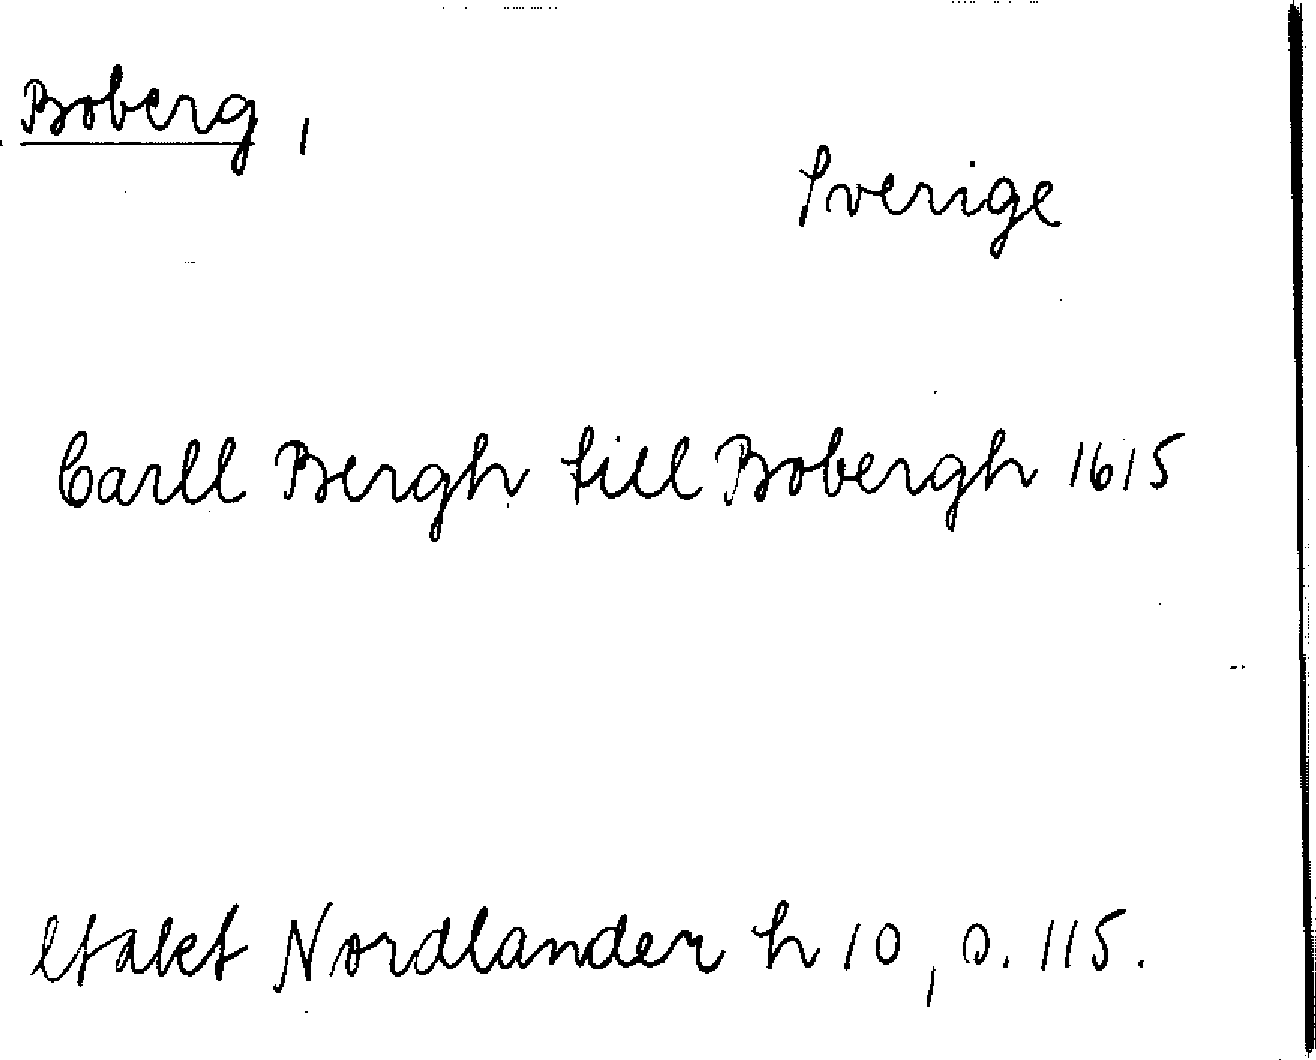 Boberg,
Sverige
Carll Bergh till Bobergh 1615
släkt Nordlander h 10, s. 115.